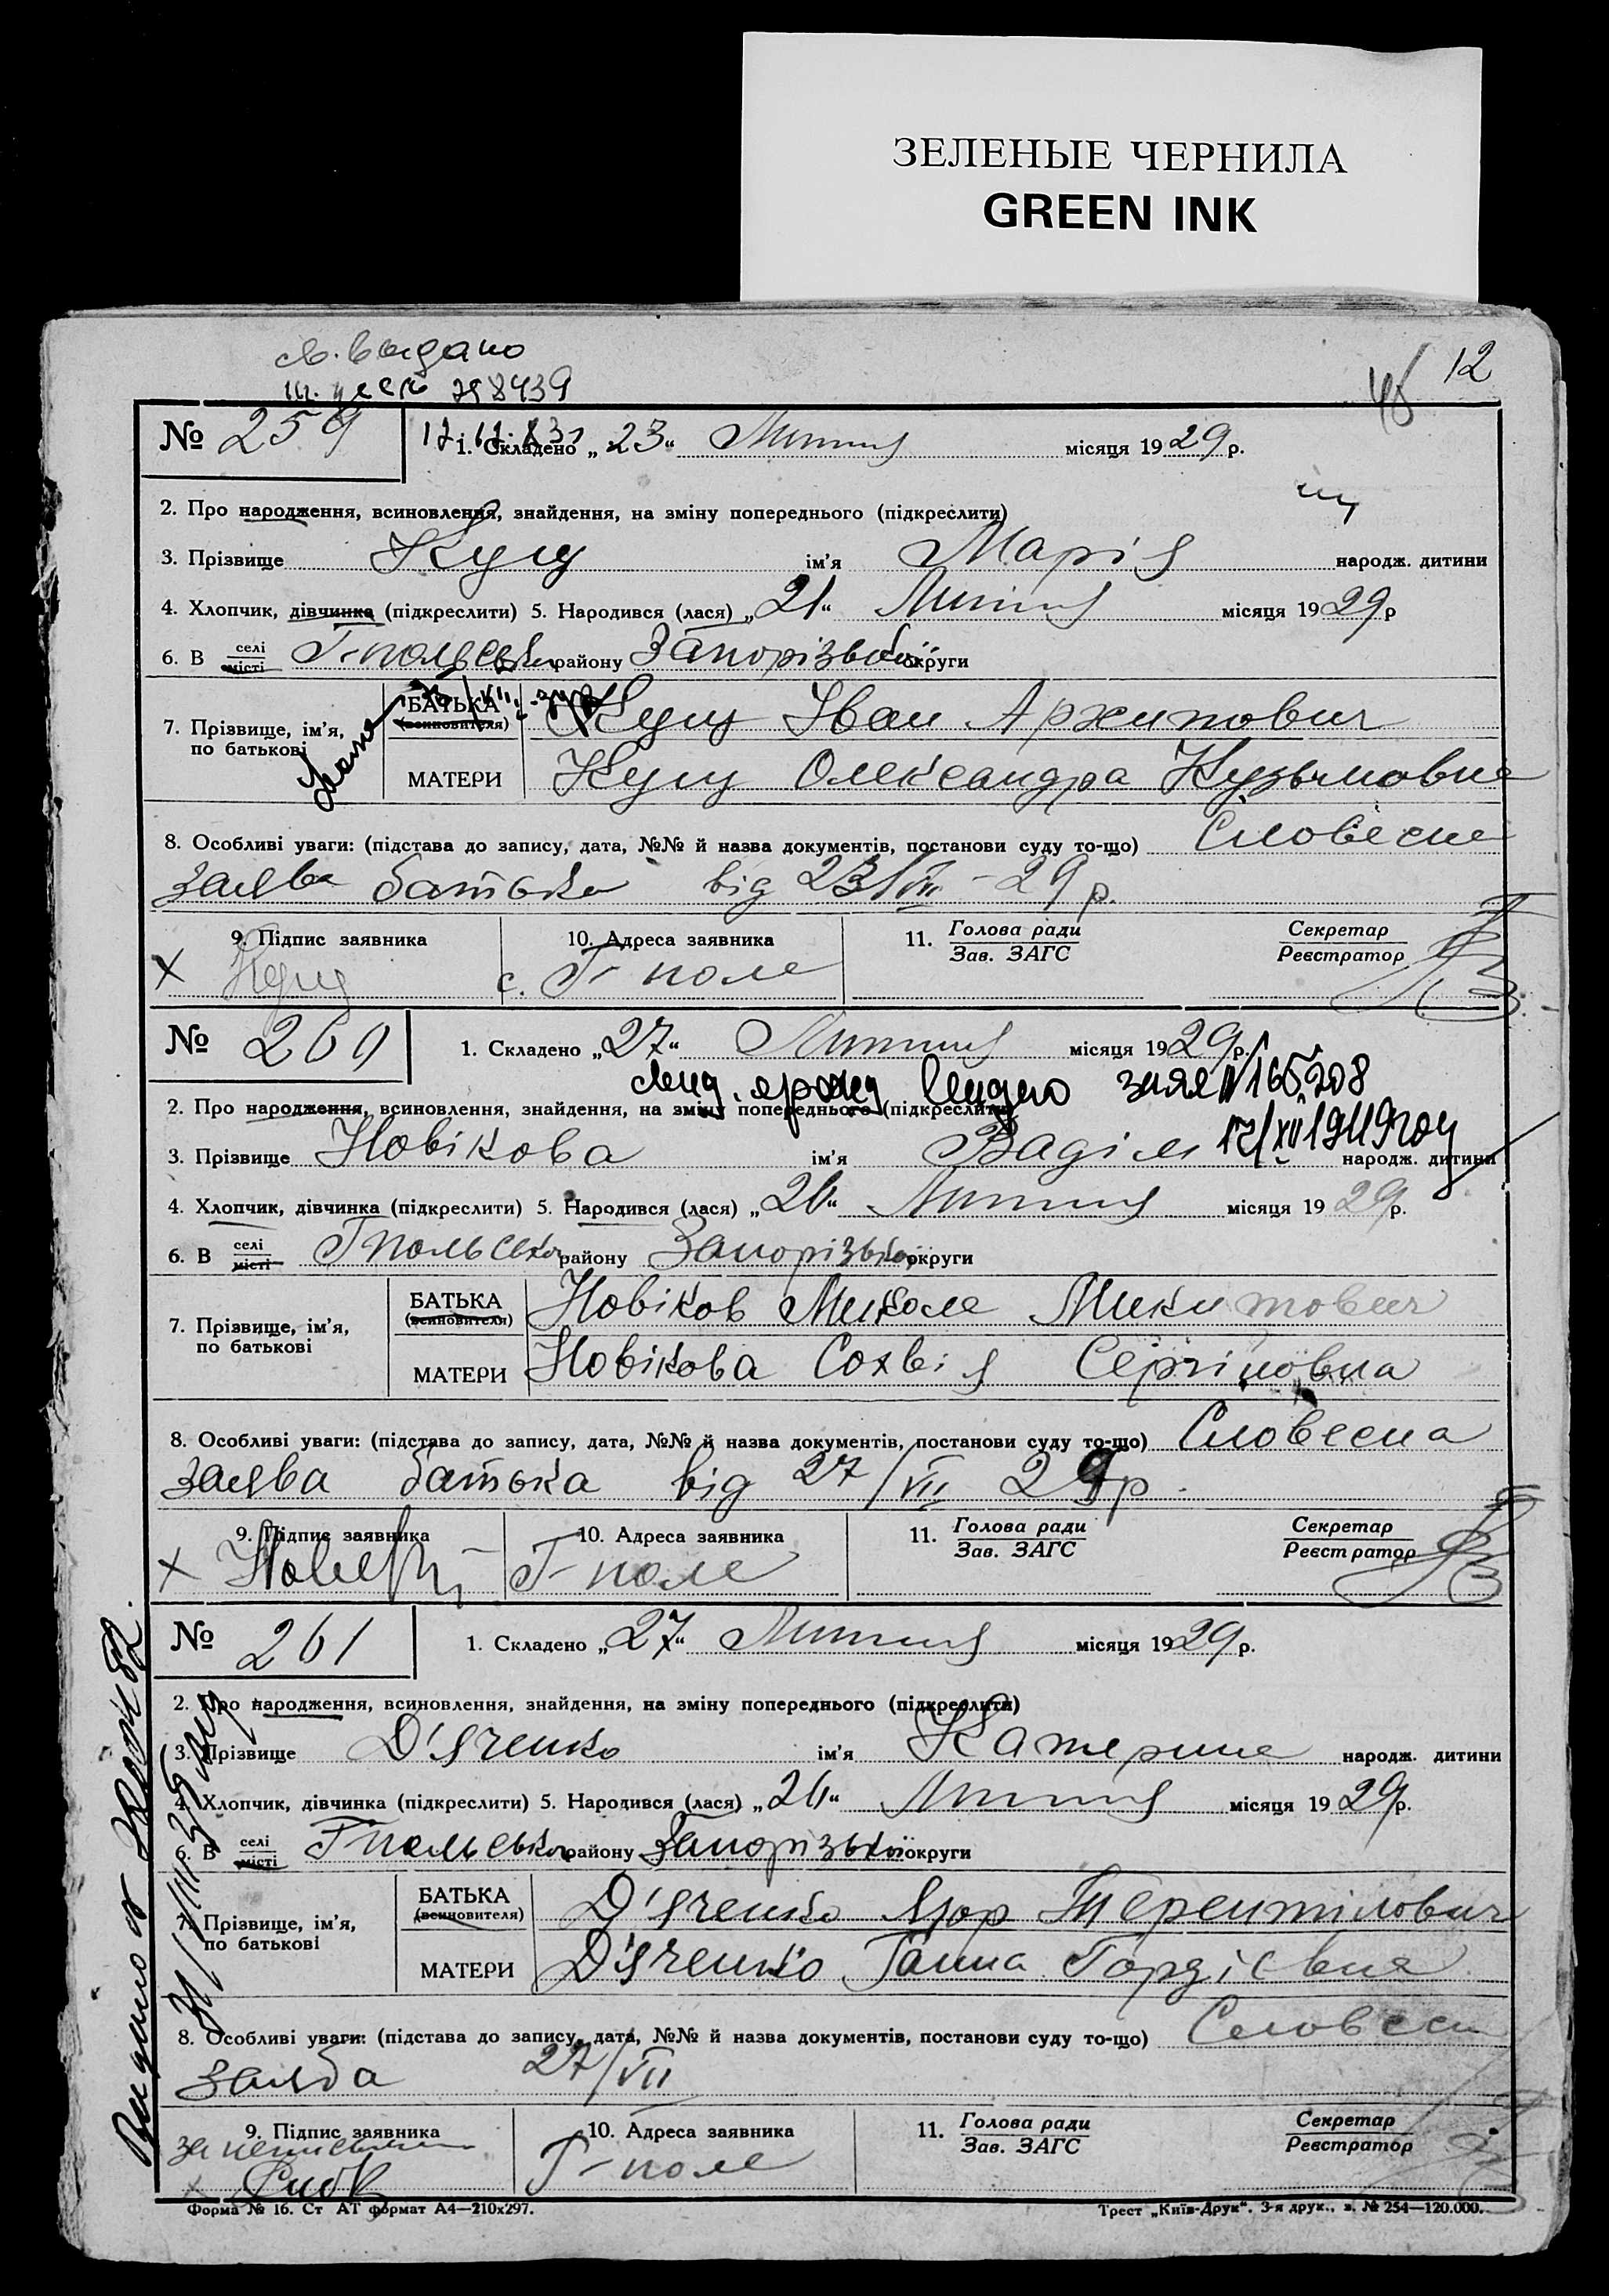 ЗЕЛЕНЫЕ ЧЕРНИЛА
GREEN INK
12
№ 259
1. Складено „23“ Липня місяця 1929 р.
2. Про народження, всиновлення, знайдення, на зміну попереднього (підкреслити)
3. Прізвище Кущ ім'я Марія народж. дитини
4. Хлопчик, дівчинка (підкреслити) 5. Народився (лася) „21“ Липня місяця 1929 р
6. В селі місті Г-польсько району Запорізької округи
7. Прізвище, ім'я, по батькові
БАТЬКА (всиновителя) Кущ Іван Архипович
МАТЕРИ Кущ Олександра Кузьмовна
8. Особливі уваги: (підстава до запису, дата, №№ й назва документів, постанови суду то-що) Словесна
заява батька від 23/VII - 29 р.
9. Підпис заявника 10. Адреса заявника 11. Голова ради Зав. ЗАГС Секретар Реєстратор
х Кущ с. Г-поле
№ 260
1. Складено „27“ Липня місяця 1929 р.
2. Про народження, всиновлення, знайдення, на зміну попереднього (підкреслити)
3. Прізвище Новікова ім'я Вадім народж. дитини
4. Хлопчик, дівчинка (підкреслити) 5. Народився (лася) „21“ Липня місяця 1929 р.
6. В селі місті Гпольсько району Запорізької округи
7. Прізвище, ім'я, по батькові
БАТЬКА (всиновителя) Новіков Микола Микитович
МАТЕРИ Новікова Сохвія Сергіновна
8. Особливі уваги: (підстава до запису, дата, №№ й назва документів, постанови суду то-що) Словесна
заява батька від 27/VII 29 р.
9. Підпис заявника 10. Адреса заявника 11. Голова ради Зав. ЗАГС Секретар Реєстратор
х Г-поле
№ 261
1. Складено „27“ Липня місяця 1929 р.
2. Про народження, всиновлення, знайдення, на зміну попереднього (підкреслити)
3. Прізвище Д'яченко ім'я Катерина народж. дитини
4. Хлопчик, дівчинка (підкреслити) 5. Народився (лася) „21“ Липня місяця 1929 р.
6. В селі місті Гпольсько району Запорізької округи
7. Прізвище, ім'я, по батькові
БАТЬКА (всиновителя) Д'яченко Ягор Терентілович
МАТЕРИ Д'яченко Ганна Гордієвна
8. Особливі уваги: (підстава до запису, дата, №№ й назва документів, постанови суду то-що) Словесн
заява 27/VII
9. Підпис заявника 10. Адреса заявника 11. Голова ради Зав. ЗАГС Секретар Реєстратор
Г-поле
Форма № 16. Ст АТ формат А4—210х297.
Трест „Київ-Друк“. 3-я друк., з. № 254—120.000.